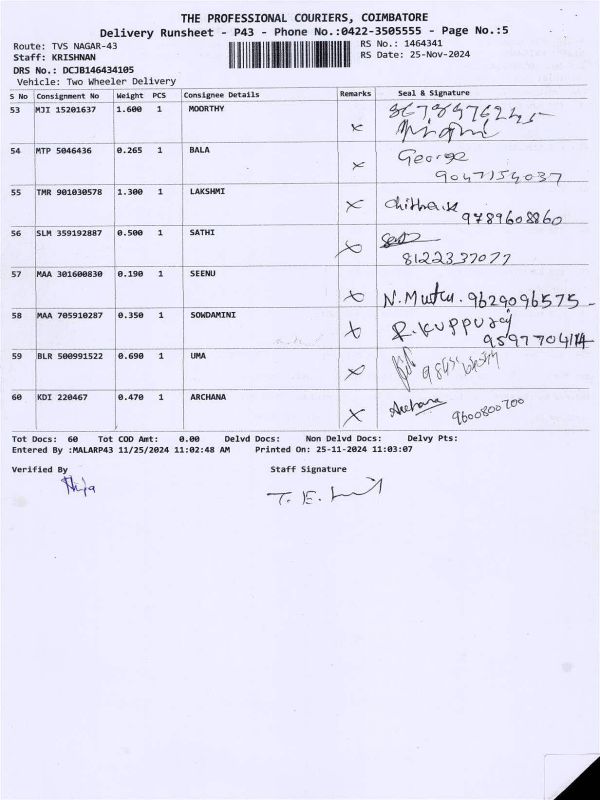 THE PROFESSIONAL COURIERS, COIMBATORE
Delivery Runsheet - P43 - Phone No.:0422-3505555 - Page No.:5
Route: TVS NAGAR-43 RS No.: 1464341
Staff: KRISHNAN RS Date: 25-Nov-2024
DRS No.: DCJB146434105
Vehicle: Two Wheeler Delivery
S No Consignment No Weight PCS Consignee Details Remarks Seal & Signature
53 MJI 15201637 1.600 1 MOORTHY x
54 MTP 5046436 0.265 1 BALA x George
9047154037
55 TMR 901030578 1.300 1 LAKSHMI x
9789608860
56 SLM 359192887 0.500 1 SATHI x
8122337077
57 MAA 301600830 0.190 1 SEENU x N. Muthu. 9629096575
58 MAA 705910287 0.350 1 SOWDAMINI x R. KUPPURaj
9597704114
59 BLR 500991522 0.690 1 UMA x
60 KDI 220467 0.470 1 ARCHANA x Archana 9600800700
Tot Docs: 60 Tot COD Amt: 0.00 Delvd Docs: Non Delvd Docs: Delvy Pts:
Entered By :MALARP43 11/25/2024 11:02:48 AM Printed On: 25-11-2024 11:03:07
Verified By Staff Signature